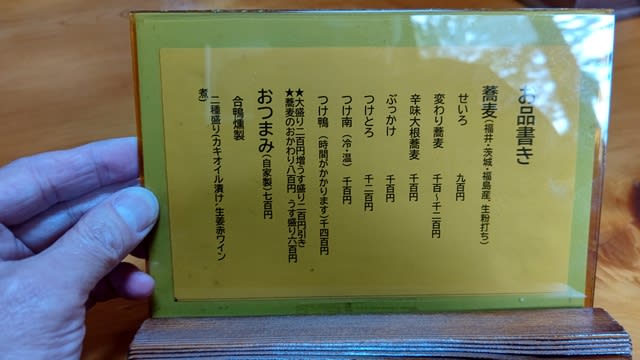 お品書き
蕎麦(福井・茨城・福島産、生粉打ち)
せいろ 九百円
変わり蕎麦 千百~千二百円
辛味大根蕎麦 千百円
ぶっかけ 千百円
つけとろ 千二百円
つけ南(冷・温) 千百円
つけ鴨(時間がかかります)千四百円
★大盛り二百円増うす盛り二百円引き
★蕎麦のおかわり八百円 うす盛り六百円
おつまみ(自家製)七百円
合鴨燻製
二種盛り(カキオイル漬け・生姜赤ワイン
煮)